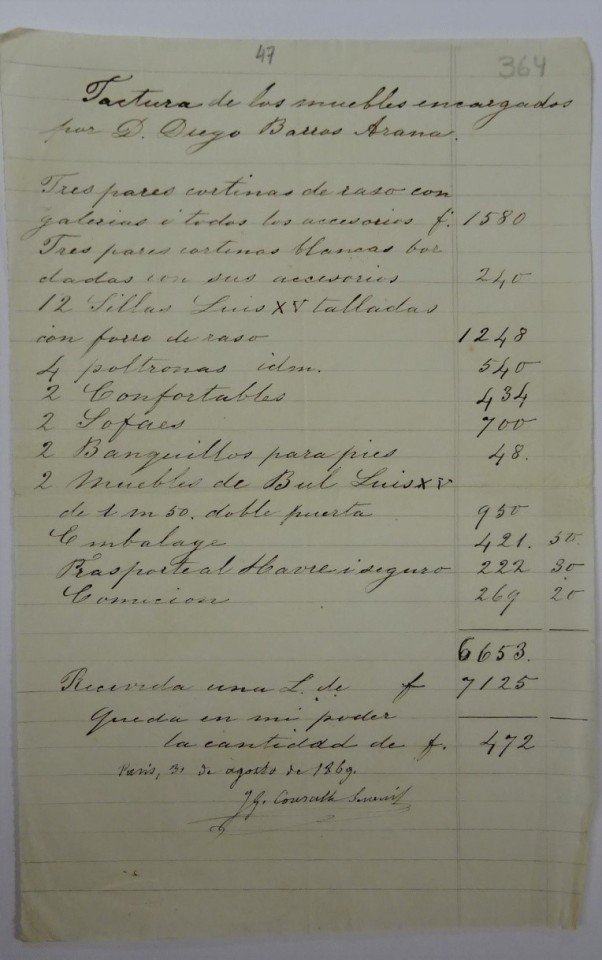 47
364
Factura de los muebles encargados
por D. Diego Barros Arana.
Tres pares cortinas de raso con
galerias i todos los accesorios f. 1580
Tres pares cortinas blancas bor
dadas con sus accesorios 240
12 Sillas Luis XV talladas
con forro de raso 1248
4 poltronas idm. 540
2 Confortables 434
2 Sofaes 700
2 Banquillos para pies 48.
2 Muebles de Bul Luis XV
de 1 m 50. doble puerta 950
Embalage 421. 50
Trasporte al Havre i seguro 222 30
Comicion 269 20
6653.
Recivida una L. de f 7125
Queda en mi poder
la cantidad de f. 472
Paris, 31 de agosto de 1869.